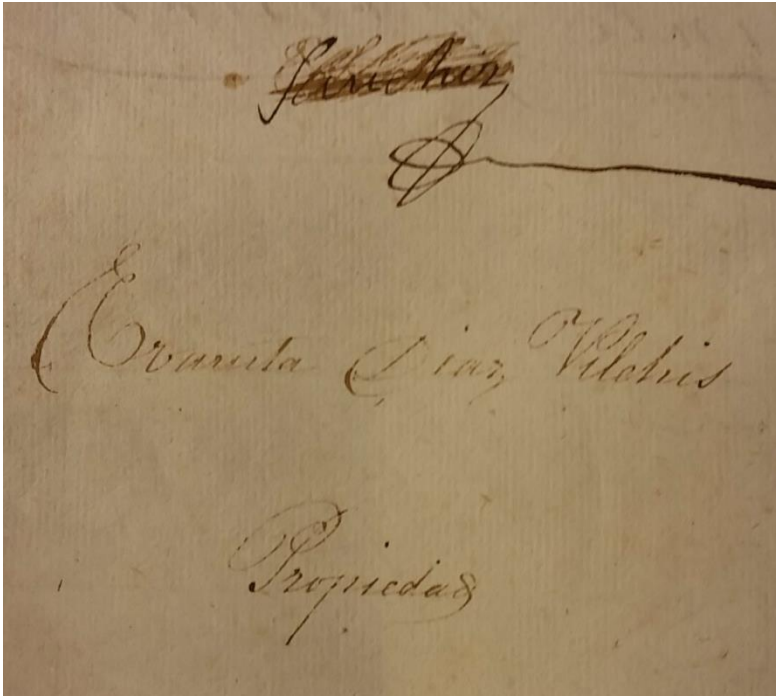 Sanchez
Evarista Diaz Vilchis
Propiedad